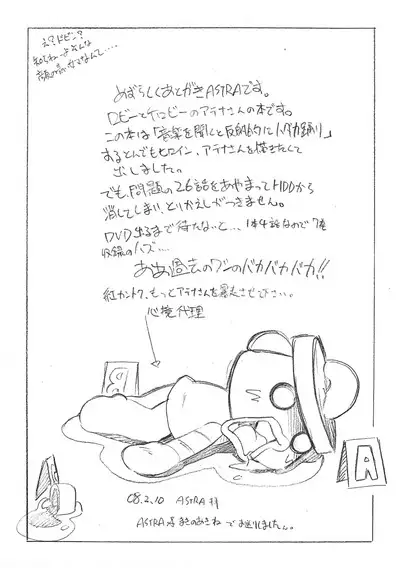 え？ドビン？
知らねーよそんな
顔の長いカマなんて….
めずらしくあとがきASTRAです。
ロビーとケロビーのアラナさんの本です。
この本は「音楽を聞くと反射的にバカ踊り」
するとんでもヒロイン、アラナさんを描きたくて
出しました。
でも、問題の26話をあやまってHDDから
消してしまい、とりかえしがつきません。
DVD出るまで待たないと… 1本4話なので7巻
収録のハズ….
ああ過去のワシのバカバカバカ!!
紅カントク、もっとアラナさんを暴走させて下さい。
心境代理
B
A
08.2.10 ASTRA 拝
ASTRA でお送りしました。